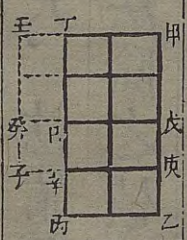 壬 丁 甲
癸 戊
子 辛 庚
丙 乙